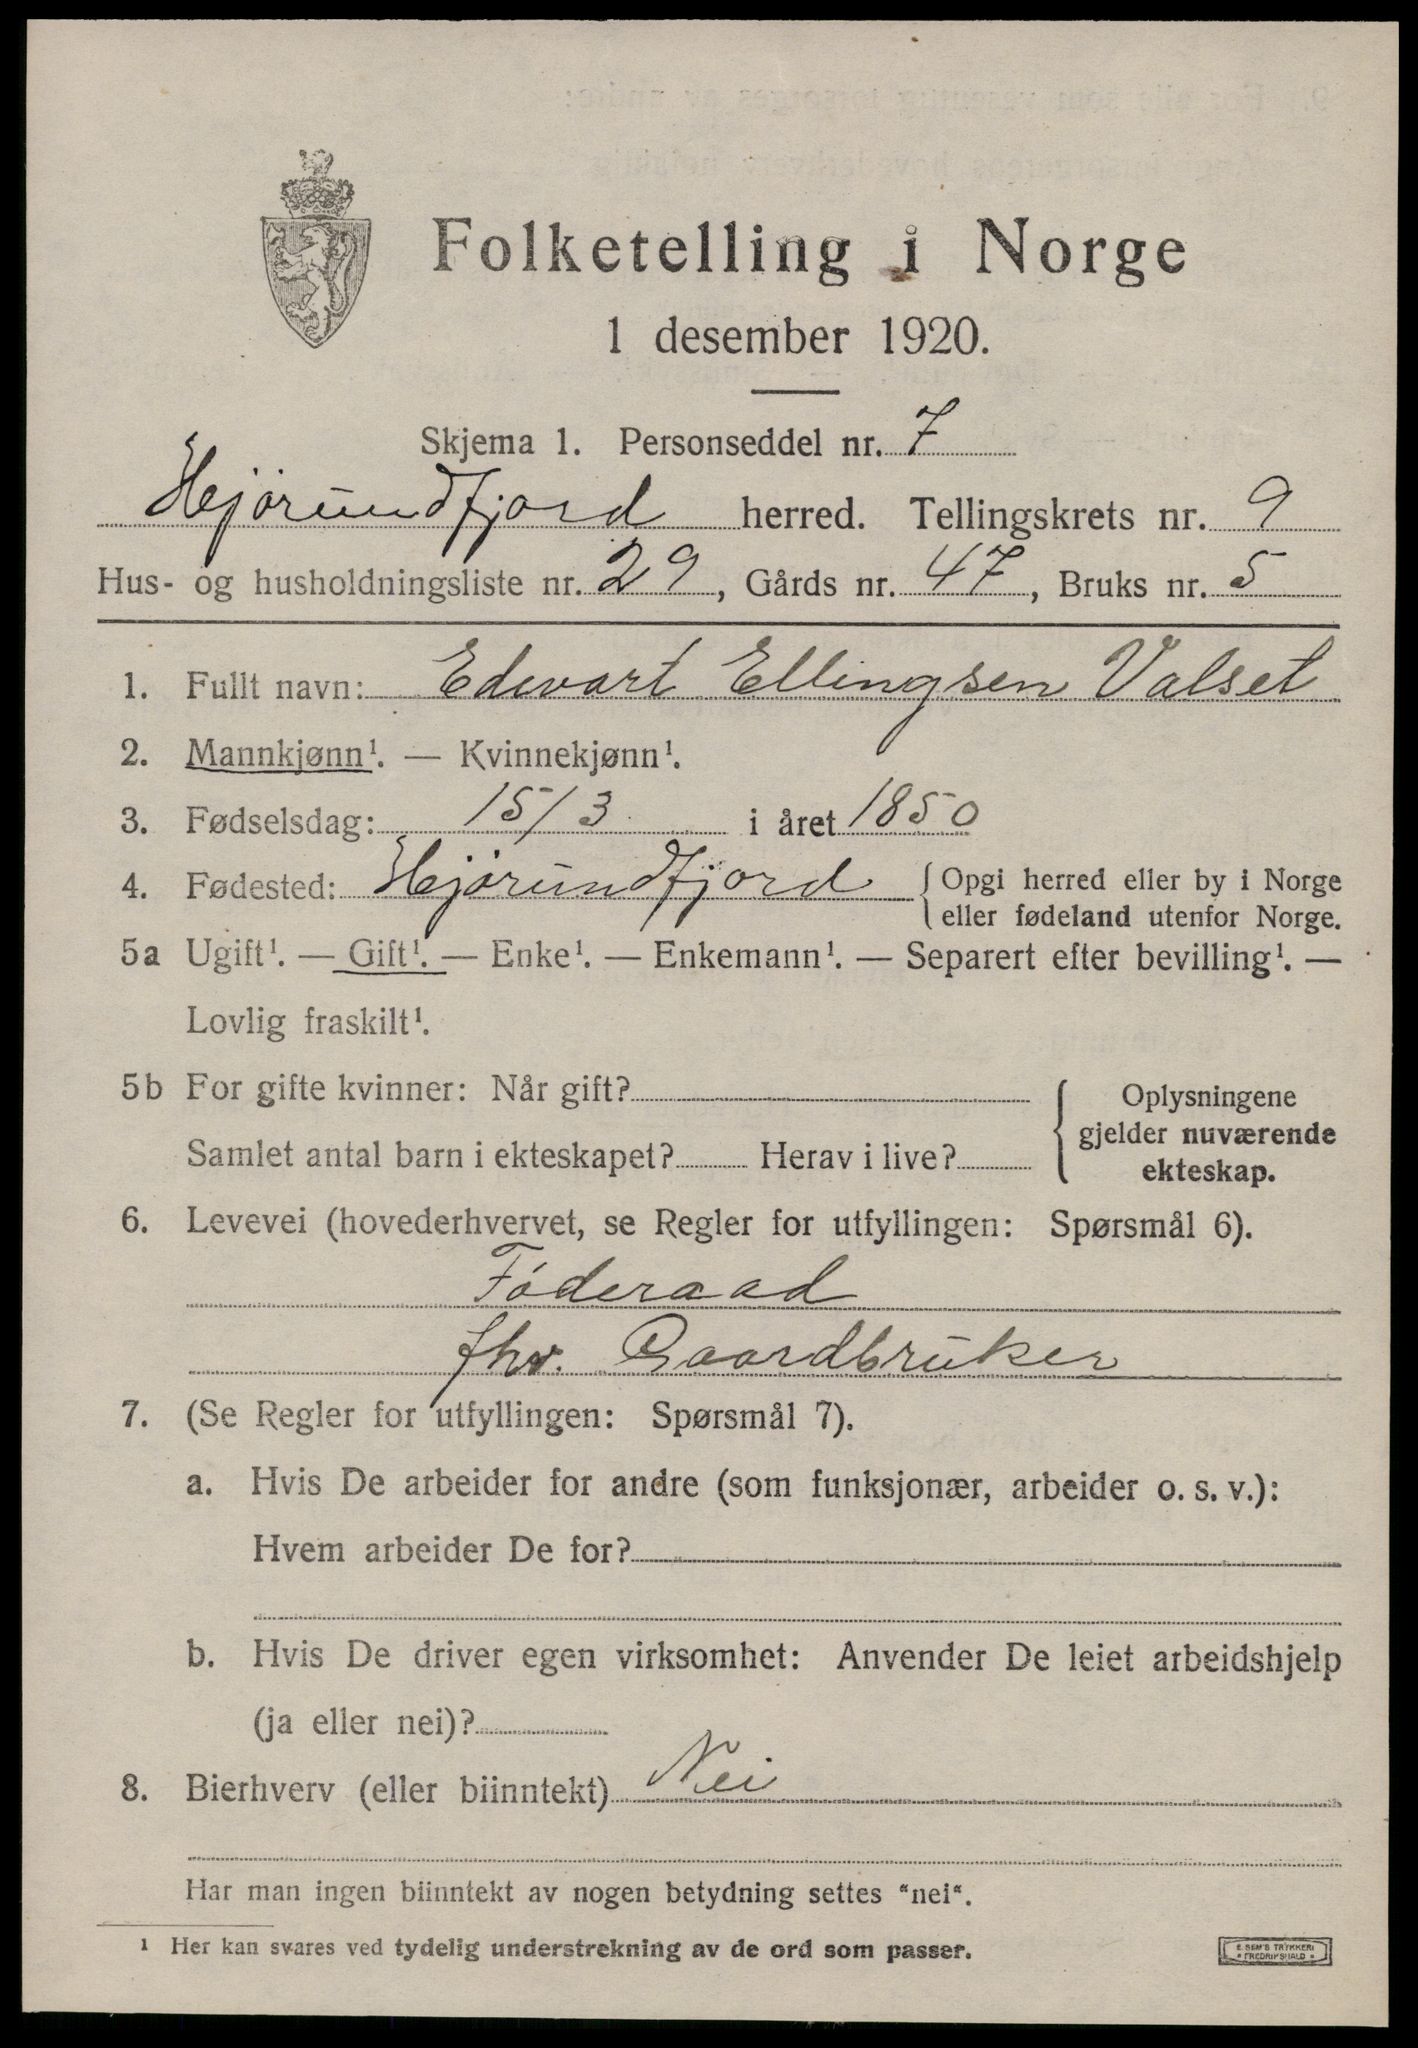 Folketelling i Norge
1 desember 1920.
Skjema 1. Personseddel nr. 7
Hjørundfjord herred. Tellingskrets nr. 9
Hus- og husholdningsliste nr. 29, Gårds nr. 47, Bruks nr. 5
1. Fullt navn: Edvart Ellingsen Valset
2. Mannkjønn¹. — Kvinnekjønn¹.
3. Fødselsdag: 15/3 i året 1850
4. Fødested: Hjørundfjord { Opgi herred eller by i Norge
eller fødeland utenfor Norge.
5a Ugift¹. — Gift¹. — Enke¹. — Enkemann¹. — Separert efter bevilling¹. —
Lovlig fraskilt¹.
5b For gifte kvinner: Når gift?
Samlet antal barn i ekteskapet? Herav i live?
{ Oplysningene
gjelder nuværende
ekteskap.
6. Levevei (hovederhvervet, se Regler for utfyllingen: Spørsmål 6).
Føderaad
fhv. Gaardbruker
7. (Se Regler for utfyllingen: Spørsmål 7).
a. Hvis De arbeider for andre (som funksjonær, arbeider o. s. v.):
Hvem arbeider De for?
b. Hvis De driver egen virksomhet: Anvender De leiet arbeidshjelp
(ja eller nei)?
8. Bierhverv (eller biinntekt) Nei
Har man ingen biinntekt av nogen betydning settes "nei".
¹ Her kan svares ved tydelig understrekning av de ord som passer.
E. SEM'S TRYKKERI
FREDRIKSHALD